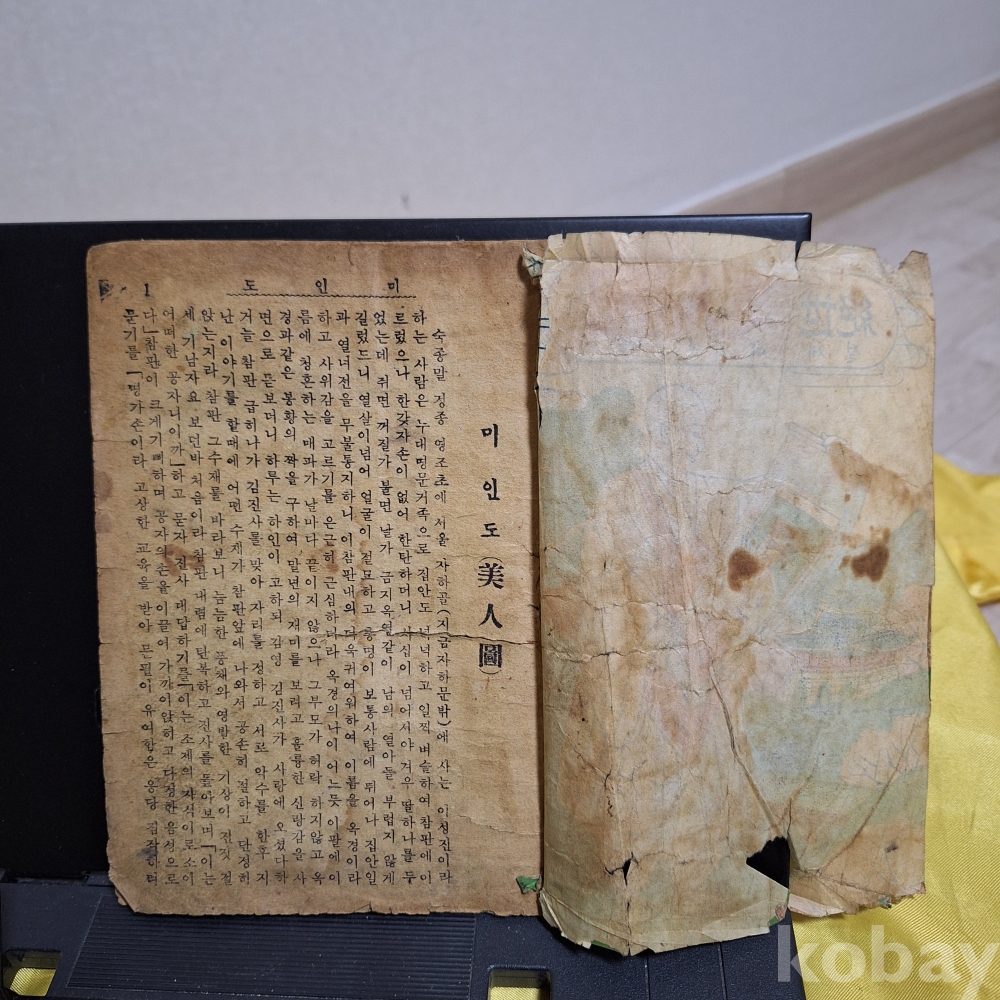 미 인 도
1
미 인 도 (美人圖)
숙종말 경종 영조초에 서울 자하골(지금자하문밖)에 사는 이성진이라
하는 사람은 누대명문거족으로 집안도 넉넉하고 일찍 벼슬하여 참판에 이
르렀으나 한갓자손이 없어 한탄하더니 사십이 넘어서야 겨우 딸하나를 두
었는데 쥐면 꺼질가 불면 날가 금지옥엽같이 남의 열아들 부럽지 않게
길렀드니 열살이넘어 얼굴이 절묘하고 총명이 보통사람에 뛰어나 집안일
과 열녀전을 무불통지하니 이참판내외 더욱귀여워하여 이름을 옥경이라
하고 사위감을 고르기를 은근히 근심하더라 옥경의나이 어느듯 이팔에 이
름에 청혼하는 매파가 날마다 끝이지 않으나 그부모가 허락 하지않고 옥
경과같은 봉황의 짝을 구하여 말년의 재미를 보려고 훌륭한 신랑감을 사
면으로 듣보더니 하루는 하인이 고하되 김영 김진사가 사랑에 오셨다 하
거늘 참판 급히나가 김진사를 맞아 자리를 정하고 서로 악수를 한후 지
난 이야기를 할때에 어떤 수재가 참판앞에 나와서 공손히 절하고 단정히
앉는지라 참판 그수재를 바라보니 늠늠한 풍채와 영발한 기상이 전짓 절
세 기남자요 보던바 처음이라 참판 내렴에 탄복하고 진사를 돌아보며「이는
어떠한 공자니이까」하고 묻자 진사 대답하기를「이는 조제의 자식이로소이
다」참판이 크게기뻐하며 공자의손을 이끌어 가까이앉히고 다정한음성으로
묻기를「명가손이라 고상한 교육을 받아 문필이 유여함은 응당 짐작하려
絕
kobay